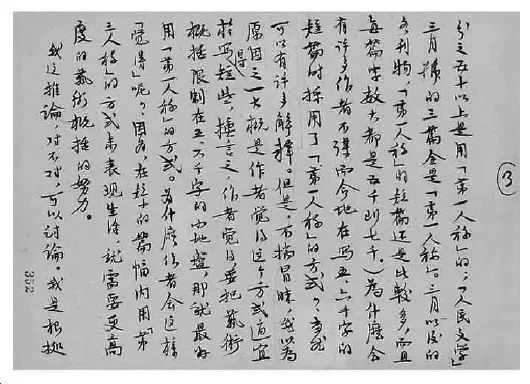 ③
分之五十以上是用「第一人称」的；「人民文学」
三月号的三篇全是「第一人称」。三月以后的
各刊物，「第一人称」的短篇还是比较多，而且
每篇字数大都是五千到七千。）为什么会
有许多作者不谋而合地在写五、六千字的
短篇时採用了「第一人称」的方式？当然
可以有许多解释。但是，不揣冒昧，我以为
原因之一大概是作者觉得这个方式适宜
於写得短些，换言之，作者觉得要把艺术
概括限制在五、六千字的小地盘，那就最好
用「第一人称」的方式。为什么作者会这样
「觉得」呢？因为，在较小的篇幅内用「第
三人称」的方式来表现生活，就需要更高
度的艺术概括的努力。
我这推论，对不对，可以讨论。我是根据
352